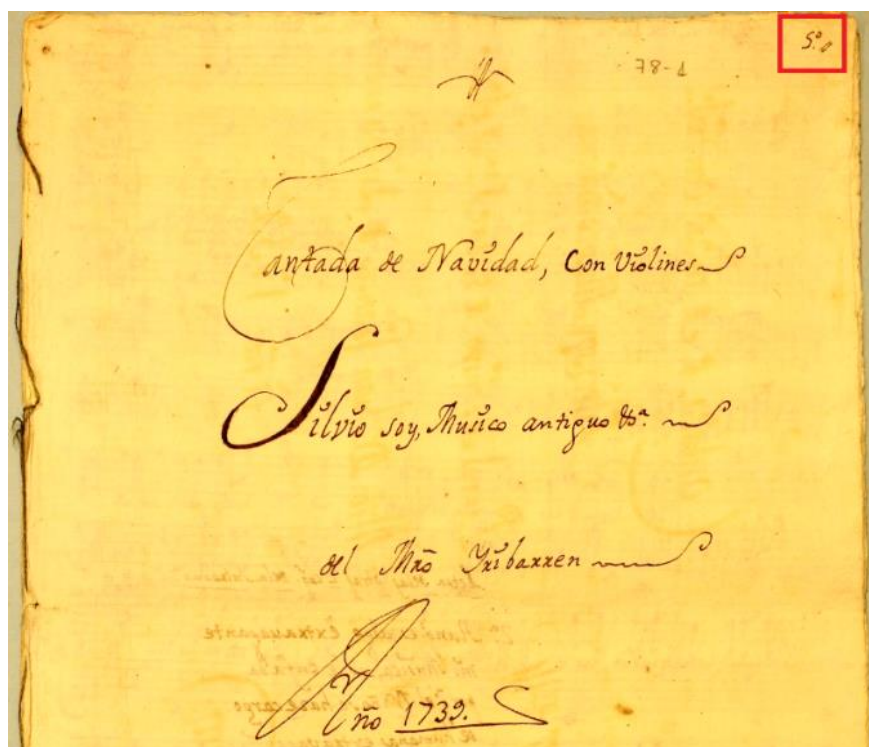 5º
78-1
Cantada de Navidad, Con Violines
Silvio soy, Musico antiguo &ª.
del Mrõ Yribarren
Año 1739.